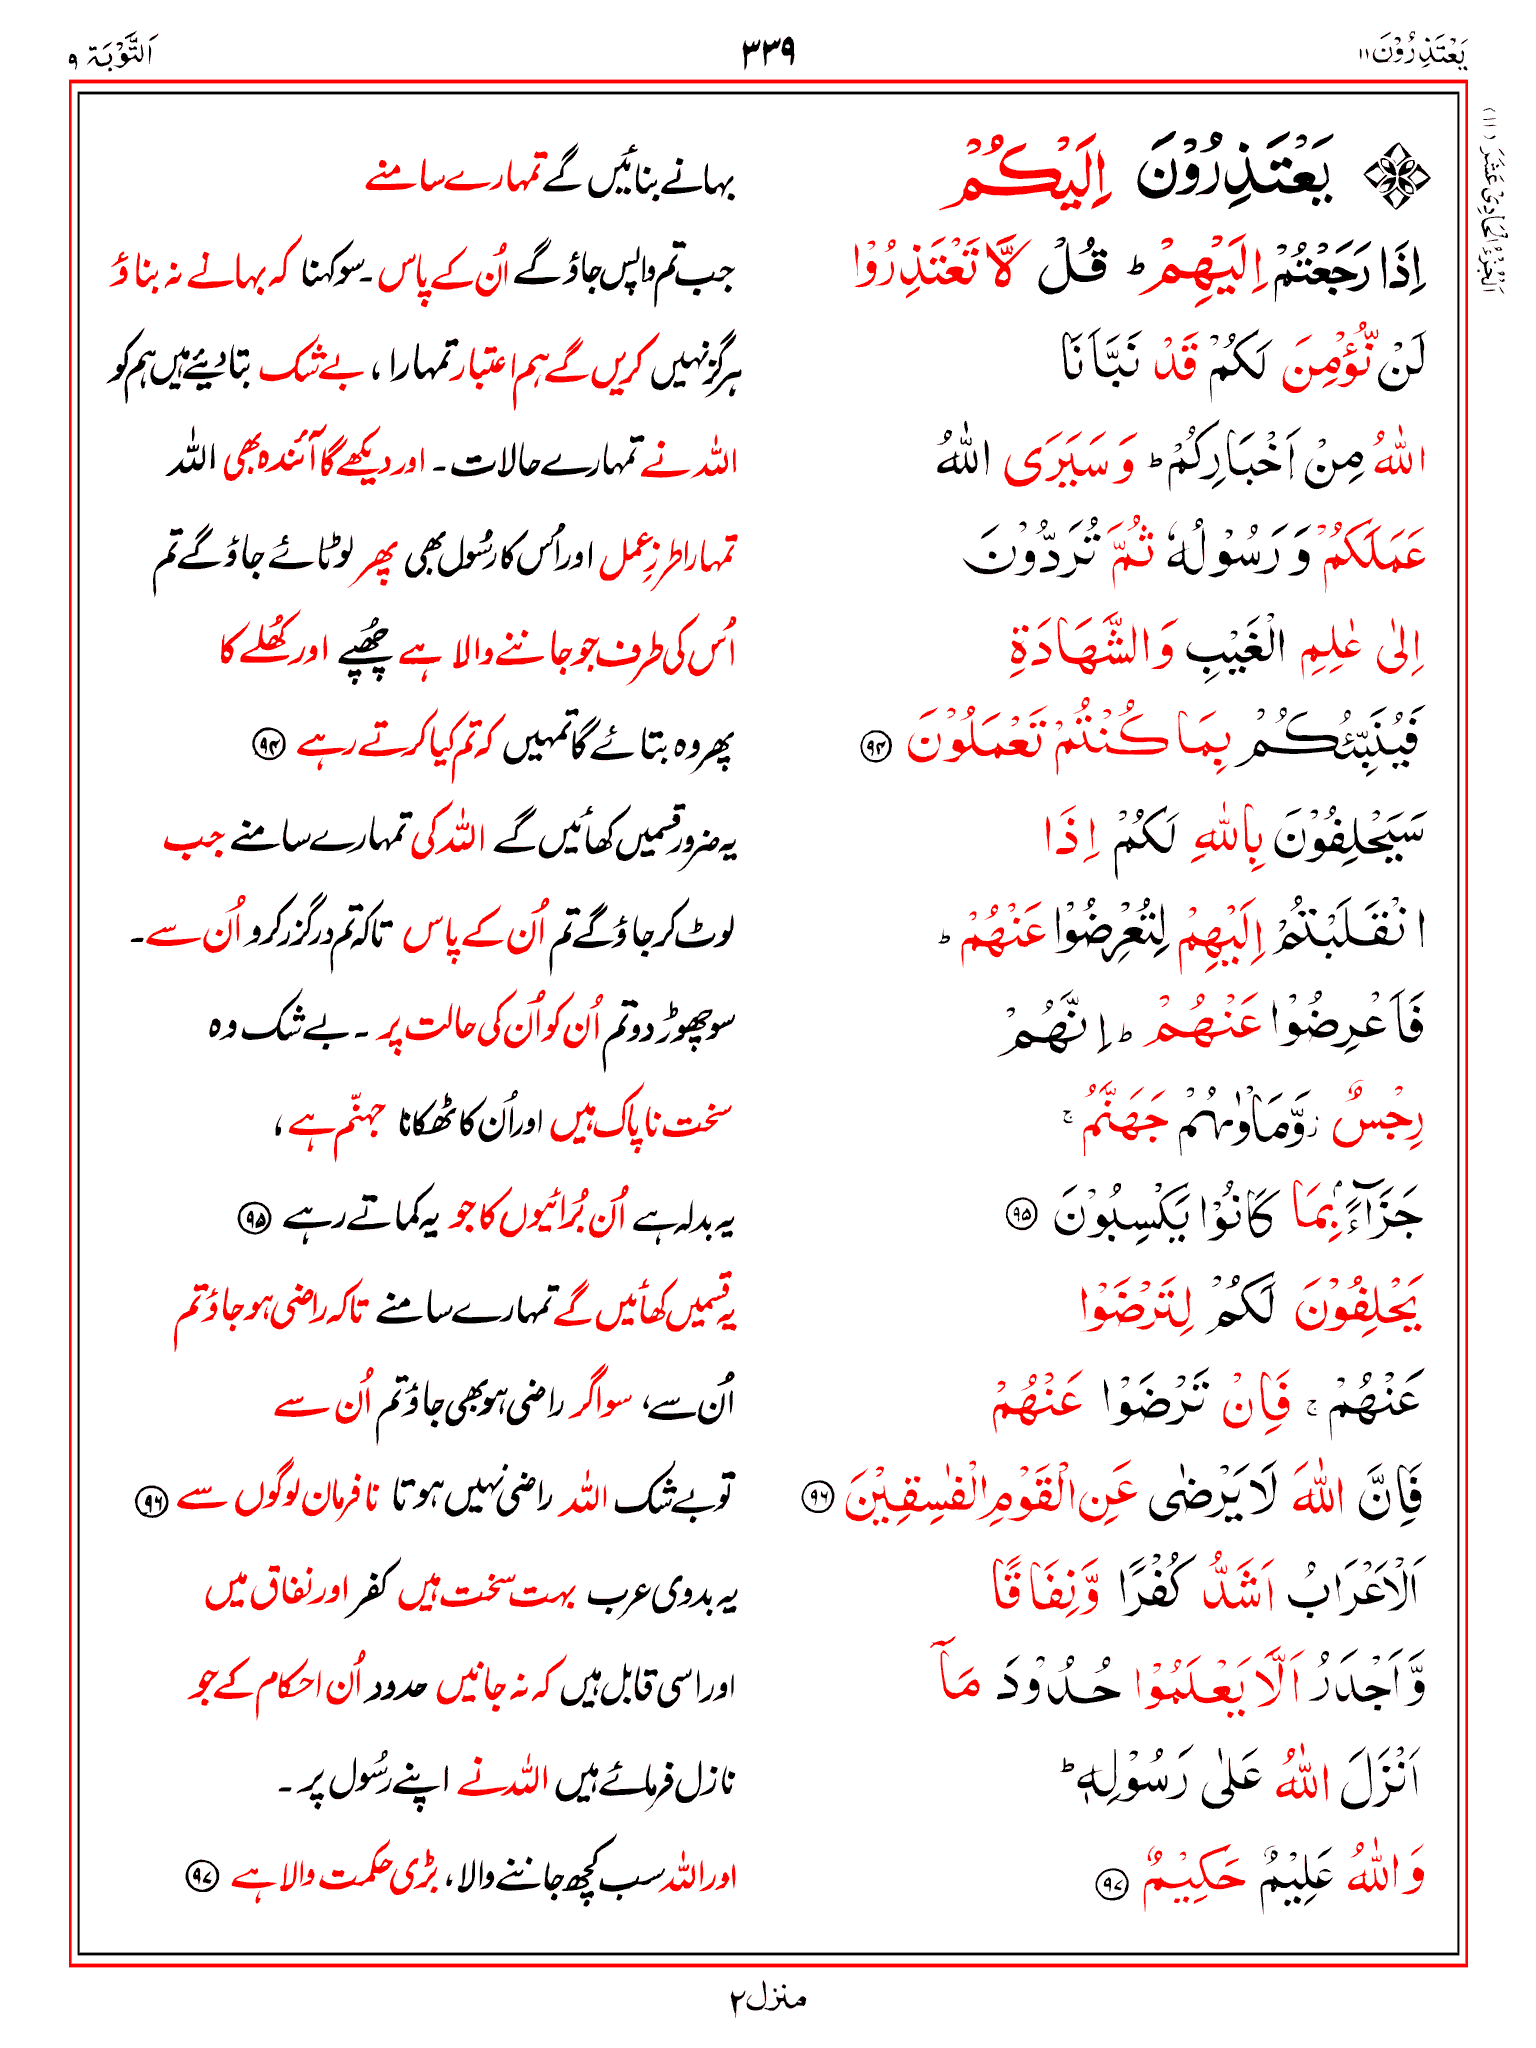 یَعْتَذِرُوْنَ ۱۱ ۳۳۹ اَلتَّوْبَة ۹
اَلْجُزْءُ الْحَادِیْ عَشَرَ (۱۱)
یَعْتَذِرُوْنَ اِلَیْكُمْ بہانے بنائیں گے تمہارے سامنے
اِذَا رَجَعْتُمْ اِلَیْهِمْ ؕ قُلْ لَّا تَعْتَذِرُوْا جب تم واپس جاؤ گے اُن کے پاس ۔ سو کہنا کہ بہانے نہ بناؤ
لَنْ نُّؤْمِنَ لَكُمْ قَدْ نَبَّاَنَا ہرگز نہیں کریں گے ہم اعتبار تمہارا ، بے شک بتا دیئے ہیں ہم کو
اللّٰهُ مِنْ اَخْبَارِكُمْ ؕ وَ سَیَرَی اللّٰهُ اللہ نے تمہارے حالات ۔ اور دیکھے گا آئندہ بھی اللہ
عَمَلَكُمْ وَ رَسُوْلُهٗ ثُمَّ تُرَدُّوْنَ تمہارا طرزِ عمل اور اُس کا رسُول بھی پھر لوٹائے جاؤ گے تم
اِلٰی عٰلِمِ الْغَیْبِ وَ الشَّهَادَةِ اُس کی طرف جو جاننے والا ہے چُھپے اور کُھلے کا
فَیُنَبِّئُكُمْ بِمَا كُنْتُمْ تَعْمَلُوْنَ ۹۴ پھر وہ بتائے گا تمہیں کہ تم کیا کرتے رہے ۹۴
سَیَحْلِفُوْنَ بِاللّٰهِ لَكُمْ اِذَا یہ ضرور قسمیں کھائیں گے اللہ کی تمہارے سامنے جب
انْقَلَبْتُمْ اِلَیْهِمْ لِتُعْرِضُوْا عَنْهُمْ ؕ لوٹ کر جاؤ گے تم اُن کے پاس تاکہ تم درگزر کرو اُن سے ۔
فَاَعْرِضُوْا عَنْهُمْ ؕ اِنَّهُمْ سو چھوڑ دو تم اُن کو اُن کی حالت پر ۔ بے شک وہ
رِجْسٌ ؗ وَّ مَاْوٰىهُمْ جَهَنَّمُ ۚ سخت ناپاک ہیں اور اُن کا ٹھکانا جہنّم ہے ،
جَزَآءًۢ بِمَا كَانُوْا یَكْسِبُوْنَ ۹۵ یہ بدلہ ہے اُن بُرائیوں کا جو یہ کماتے رہے ۹۵
یَحْلِفُوْنَ لَكُمْ لِتَرْضَوْا یہ قسمیں کھائیں گے تمہارے سامنے تاکہ راضی ہو جاؤ تم
عَنْهُمْ ۚ فَاِنْ تَرْضَوْا عَنْهُمْ اُن سے، سو اگر راضی ہو بھی جاؤ تم اُن سے
فَاِنَّ اللّٰهَ لَا یَرْضٰی عَنِ الْقَوْمِ الْفٰسِقِیْنَ ۹۶ تو بے شک اللہ راضی نہیں ہوتا نافرمان لوگوں سے ۹۶
اَلْاَعْرَابُ اَشَدُّ كُفْرًا وَّ نِفَاقًا یہ بدوی عرب بہت سخت ہیں کفر اور نفاق میں
وَّ اَجْدَرُ اَلَّا یَعْلَمُوْا حُدُوْدَ مَاۤ اور اسی قابل ہیں کہ نہ جانیں حدود اُن احکام کے جو
اَنْزَلَ اللّٰهُ عَلٰی رَسُوْلِهٖ ؕ نازل فرمائے ہیں اللہ نے اپنے رسُول پر ۔
وَ اللّٰهُ عَلِیْمٌ حَكِیْمٌ ۹۷ اور اللہ سب کچھ جاننے والا ، بڑی حکمت والا ہے ۹۷
منزل ۲